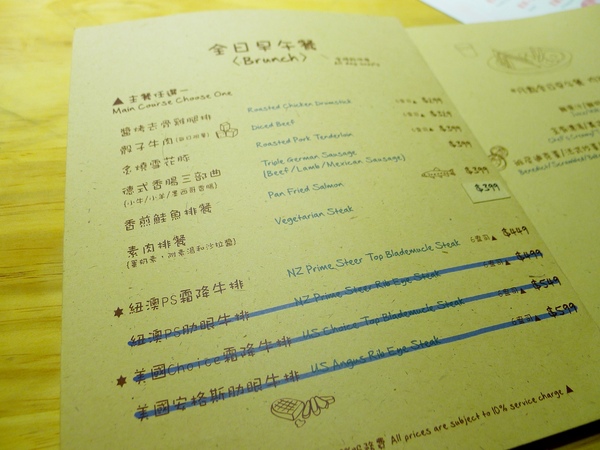 全日早午餐
(Brunch)
▲主餐任選一
Main Course Choose One
醬烤去骨雞腿排 Roasted Chicken Drumstick
骰子牛肉 Diced Beef $399
炙燒雪花豚 Roasted Pork Tenderloin $399
德式香腸三部曲 Triple German Sausage $399
(小牛/小羊/墨西哥香腸) (Beef/Lamb/Mexican Sausage)
香煎鮭魚排餐 Pan Fried Salmon $399
素肉排餐 Vegetarian Steak
★紐澳PS霜降牛排 NZ Prime Steer Top Blademucle Steak 6盎司▲ $449
紐澳PS肋眼牛排 NZ Prime Steer Rib Eye Steak 6盎司▲ $499
★美國Choice霜降牛排 US Choice Top Blademucle Steak $549
美國安格斯肋眼牛排 US Angus Rib Eye Steak 6盎司▲ $599
All prices are subject to 10% service charge ▲